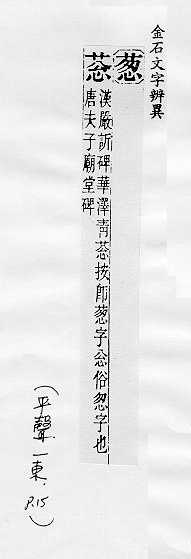 金石文字辨異
葱
蔥漢嚴訢碑華澤青蔥按即葱字忩俗怱字也
唐夫子廟堂碑
(平聲一東 P.15)